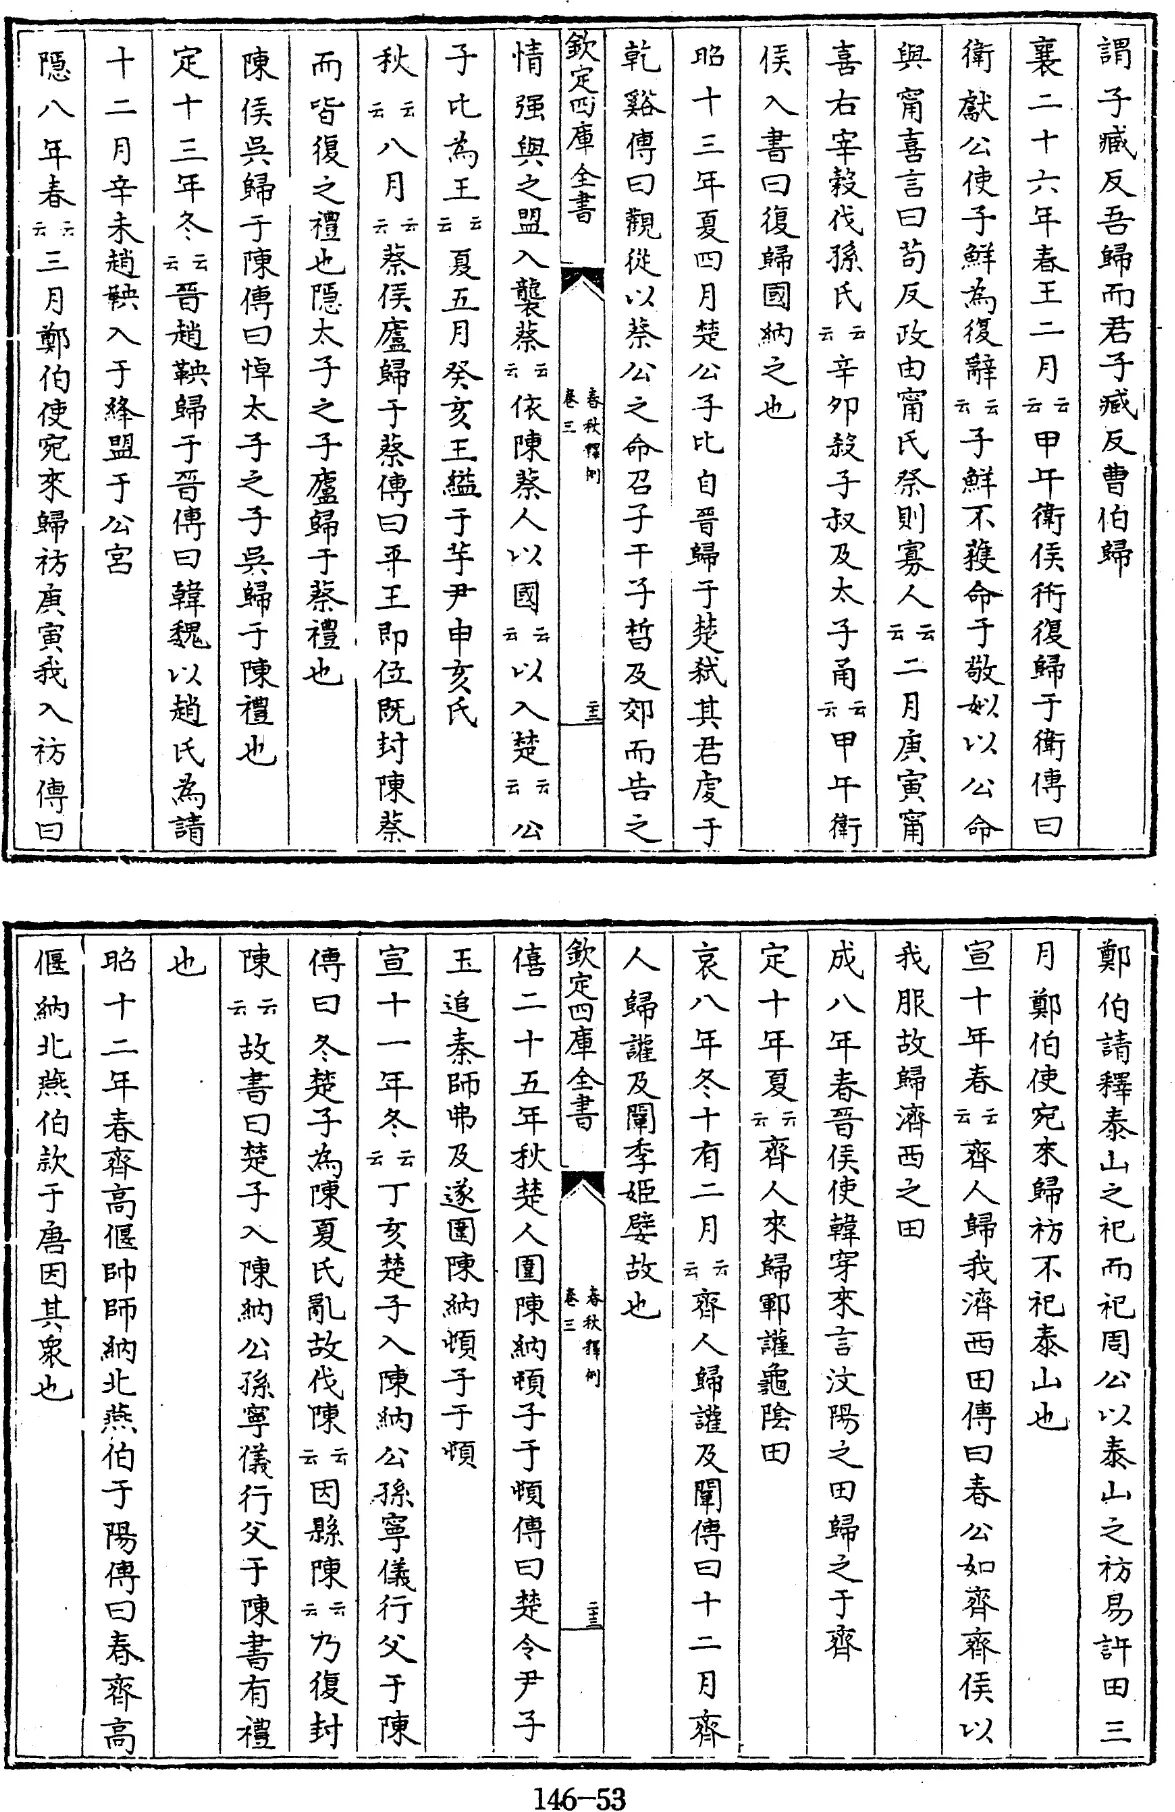 謂子臧反吾歸而君子臧反曹伯歸
襄二十六年春王二月云云甲午衛侯衎復歸于衛傳曰
衛獻公使子鮮為復辭云云子鮮不獲命于敬姒以公命
與甯喜言曰茍反政由甯氏祭則寡人云云二月庚寅甯
喜右宰穀伐孫氏云云辛卯殺子叔及太子甬云云甲午衛
侯入書曰復歸國納之也
昭十三年夏四月楚公子比自晉歸于楚弑其君虔于
乾谿傳曰觀從以蔡公之命召子干子晳及郊而告之
欽定四庫全書
春秋釋例
卷三
二十三
情强與之盟入襲蔡云云依陳蔡人以國云云以入楚云云公
子比為王云云夏五月癸亥王縊于芋尹申亥氏
秋云云八月云云蔡侯廬歸于蔡傳曰平王即位既封陳蔡
而皆復之禮也隱太子之子廬歸于蔡禮也
陳侯吳歸于陳傳曰悼太子之子吳歸于陳禮也
定十三年冬云云晉趙鞅歸于晉傳曰韓魏以趙氏為請
十二月辛未趙鞅入于絳盟于公宮
隱八年春云云三月鄭伯使宛來歸祊庚寅我入祊傳曰
鄭伯請釋泰山之祀而祀周公以泰山之祊易許田三
月鄭伯使宛來歸祊不祀泰山也
宣十年春云云齊人歸我濟西田傳曰春公如齊齊侯以
我服故歸濟西之田
成八年春晉侯使韓穿來言汶陽之田歸之于齊
定十年夏云云齊人來歸鄆讙龜陰田
哀八年冬十有二月云云齊人歸讙及闡傳曰十二月齊
人歸讙及闡季姬嬖故也
欽定四庫全書
春秋釋例
卷三
二十三
僖二十五年秋楚人圍陳納頓子于頓傳曰楚令尹子
玉追秦師弗及遂圍陳納頓子于頓
宣十一年冬云云丁亥楚子入陳納公孫寧儀行父于陳
傳曰冬楚子為陳夏氏亂故伐陳云云因縣陳云云乃復封
陳云云故書曰楚子入陳納公孫寧儀行父于陳書有禮
也
昭十二年春齊高偃帥師納北燕伯于陽傳曰春齊高
偃納北燕伯款于唐因其衆也
146-53